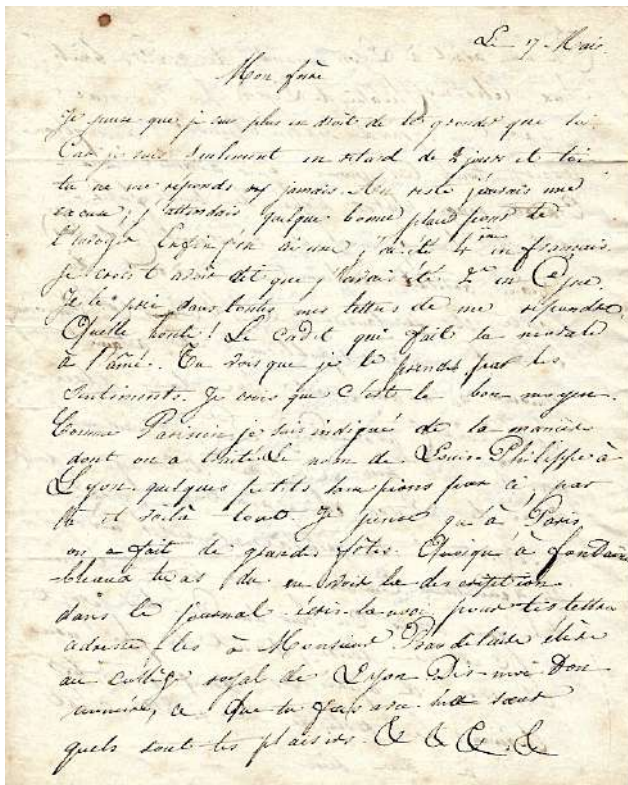 Le 17 Mai
Mon frère
Je pense que je suis plus en droit de te gronder que toi
Car je suis seulement en retard de 2 jours et toi
tu ne me réponds jamais. Au reste j'aurais une
excuse, j'attendais quelque bonne place pour te
l'envoyer Enfin j'en ai une, j'ai été 4ème en français.
Je crois t'avoir dit que j'avais été 2e en
Je te prie dans toutes mes lettres de me répondre
Quelle honte! Le cadet qui fait la morale
à l'aîné. Tu vois que je te prends par les
sentiments. Je crois que c'est le bon moyen.
Comme Parisien je suis indigné de la manière
dont on a le nom de Louis Philippe à
Lyon quelques petits lampions par ci, par
là et voilà tout. Je pense qu'à Paris
on a fait de grandes fêtes. Quoique à Fontaine
-bleau tu as du en voir la description
dans le journal écris-la moi pour tes lettres
adresse-les à Monsieur élève
au collège royal de Lyon Dis-moi Don
ce que tu fais
quels sont tes plaisirs. & & & &